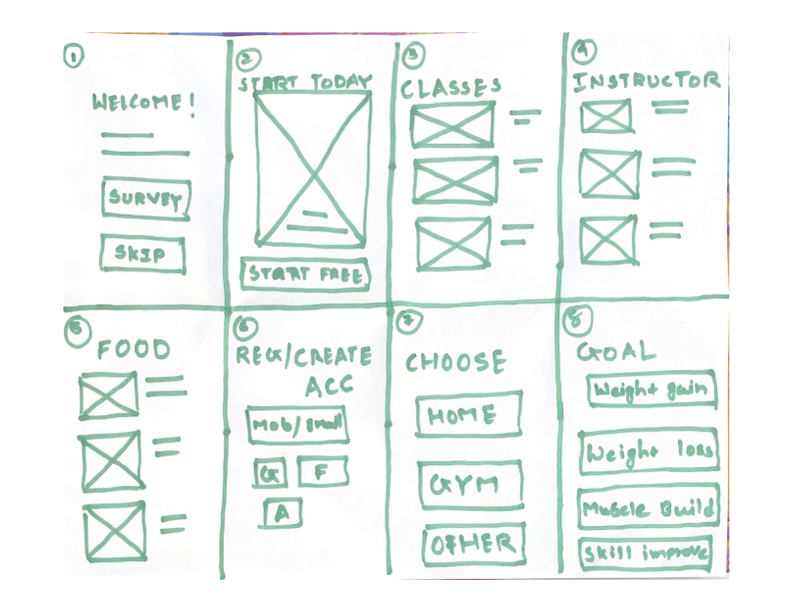 1
WELCOME!
SURVEY
SKIP
2
START TODAY
START FREE
3
CLASSES
4
INSTRUCTOR
5
FOOD
6
REG/CREATE
ACC
Mob/Email
G F
A
7
CHOOSE
HOME
GYM
OTHER
8
GOAL
Weight gain
Weight loss
Muscle Build
Skill improve